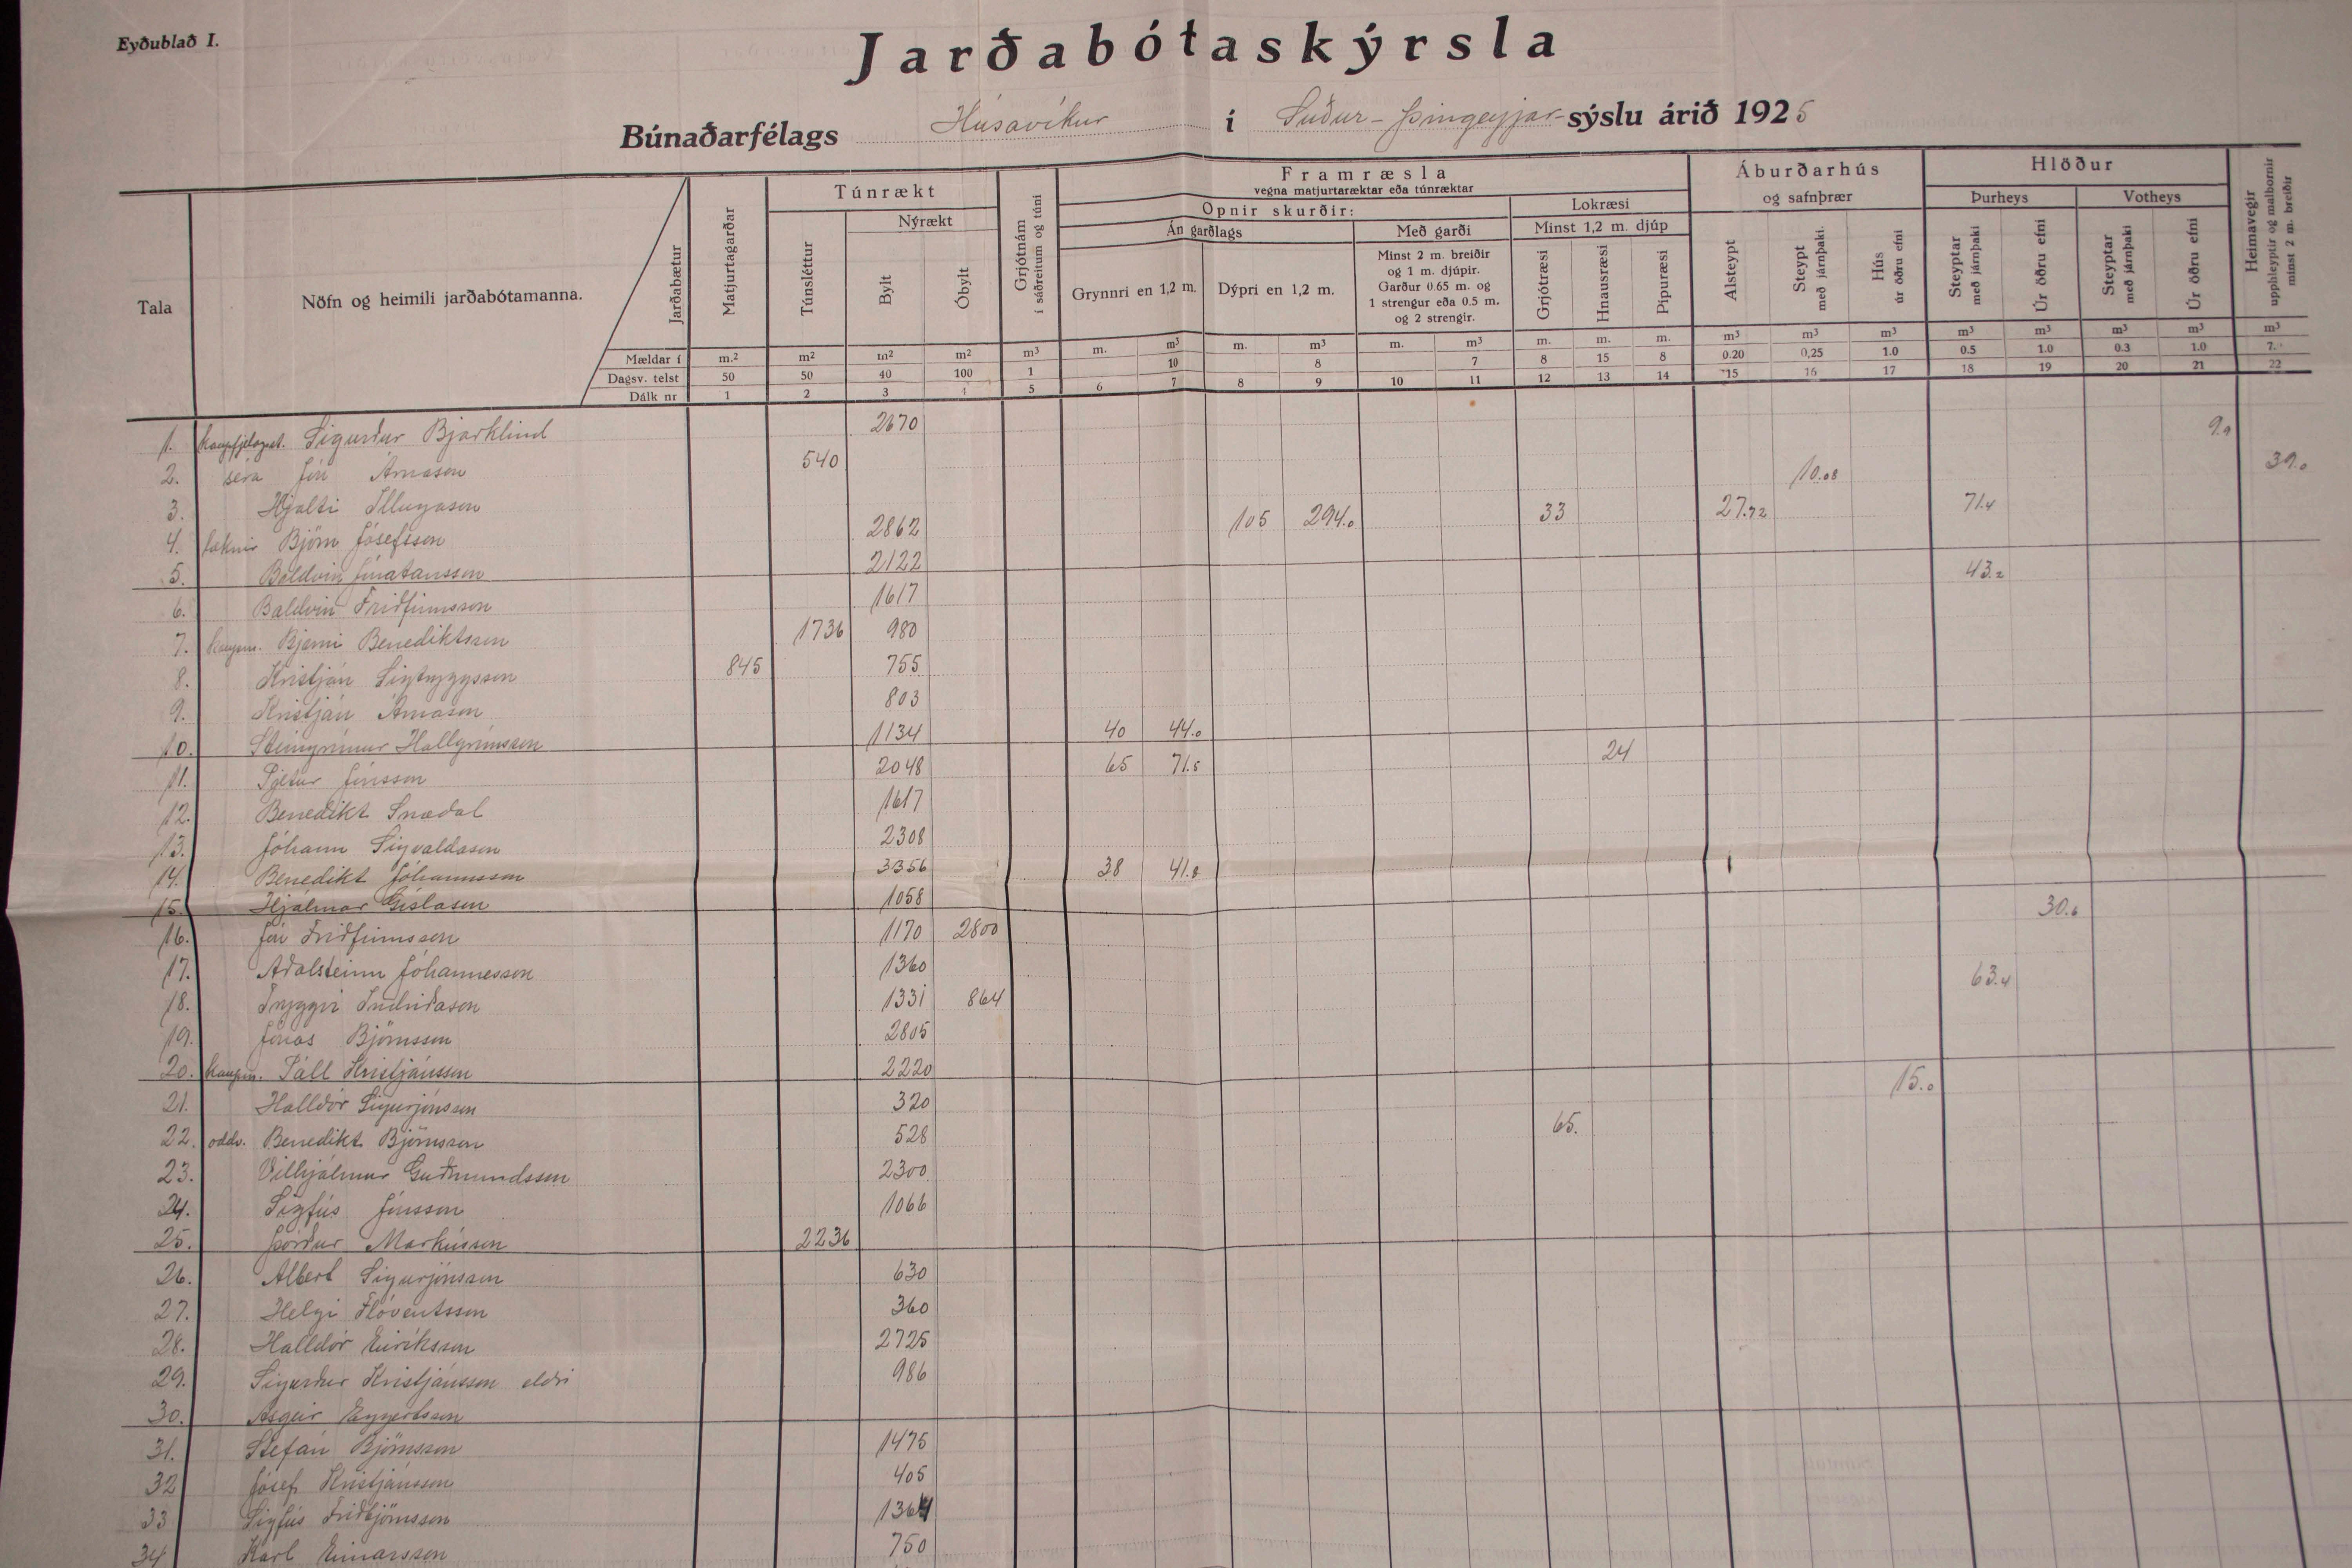 Eyðublað I.
Jarðabótaskýrsla
Búnaðarfélags Húsavíkur í Suður-Þingeyjar-sýslu árið 1925
Tala
Nöfn og heimili jarðabótamanna.
Jarðabætur
Mældar í
Dagsv. telst
Dálk nr
Matjurtagarðar m.² 50 1
Túnrækt
Túnsléttur m² 50 2
Nýrækt
Bylt m² 40 3
Óbylt m² 100 4
Grjótnám í sáðreitum og túni m³ 1 5
Framræsla
vegna matjurtaræktar eða túnræktar
Opnir skurðir:
Án garðlags
Grynnri en 1,2 m. m. m³ 10 6 7
Dýpri en 1,2 m. m. m³ 8 8 9
Með garði
Minst 2 m. breiðir
og 1 m. djúpir.
Garður 0.65 m. og
1 strengur eða 0.5 m.
og 2 strengir.
m. m³ 7 10 11
Lokræsi
Minst 1,2 m. djúp
Grjótræsi m. 8 12
Hnausræsi m. 15 13
Pípuræsi m. 8 14
Áburðarhús
og safnþrær
Alsteypt m³ 0.20 15
Steypt með járnþaki. m³ 0,25 16
Hús úr öðru efni m³ 1.0 17
Hlöður
Þurheys
Steyptar með járnþaki m³ 0.5 18
Úr öðru efni m³ 1.0 19
Votheys
Steyptar með járnþaki m³ 0.3 20
Úr öðru efni m³ 1.0 21
Heimavegir upphleyptir og malbornir minst 2 m. breiðir m³ 22
1. kaupfjelagsst. Sigurður Bjarklind 2670
2. séra Jón Arnason 540 10.08
3. Hjalti Illugason 71.4
4. læknir Björn Jósefsson 2862 105 294.0 33 27.72
5. Baldvin Jónatansson 2122 43.2
6. Baldvin Friðfinnsson 1617
7. kaupm. Bjarni Benediktsson 1736 980
8. Kristján Sigtryggsson 845 755
9. Kristján Arnason 803
10. Steingrímur Hallgrímsson 1134 40 44.0
11. Pjetur Jónsson 2048 65 71.5 24
12. Benedikt Snædal 1617
13. Jóhann Sigvaldason 2308
14. Benedikt Jóhannsson 3356 38 41.8
15. Hjálmar Gíslason 1058 30.6
16. Jón Friðfinnsson 1170 2800
17. Aðalsteinn Jóhannesson 1360 63.4
18. Tryggvi Indriðason 1331 864
19. Jónas Björnsson 2805
20. kaupm. Páll Kristjánsson 2220 15.0
21. Halldór Sigurjónsson 320
22. oddv. Benedikt Björnsson 528 65.
23. Vilhjálmur Guðmundsson 2300
24. Sigfús Jónsson 1066
25. Þórður Markússon 2236
26. Albert Sigurjónsson 630
27. Helgi Flóventsson 360
28. Halldór Eiríksson 2725
29. Sigurður Kristjánsson eldri 986
30. Asgeir Eggertsson
31. Stefán Björnsson 1475
32 Jósef Kristjánsson 405
33 Sigfús Friðbjörnsson 1364
34 Karl Einarsson 750